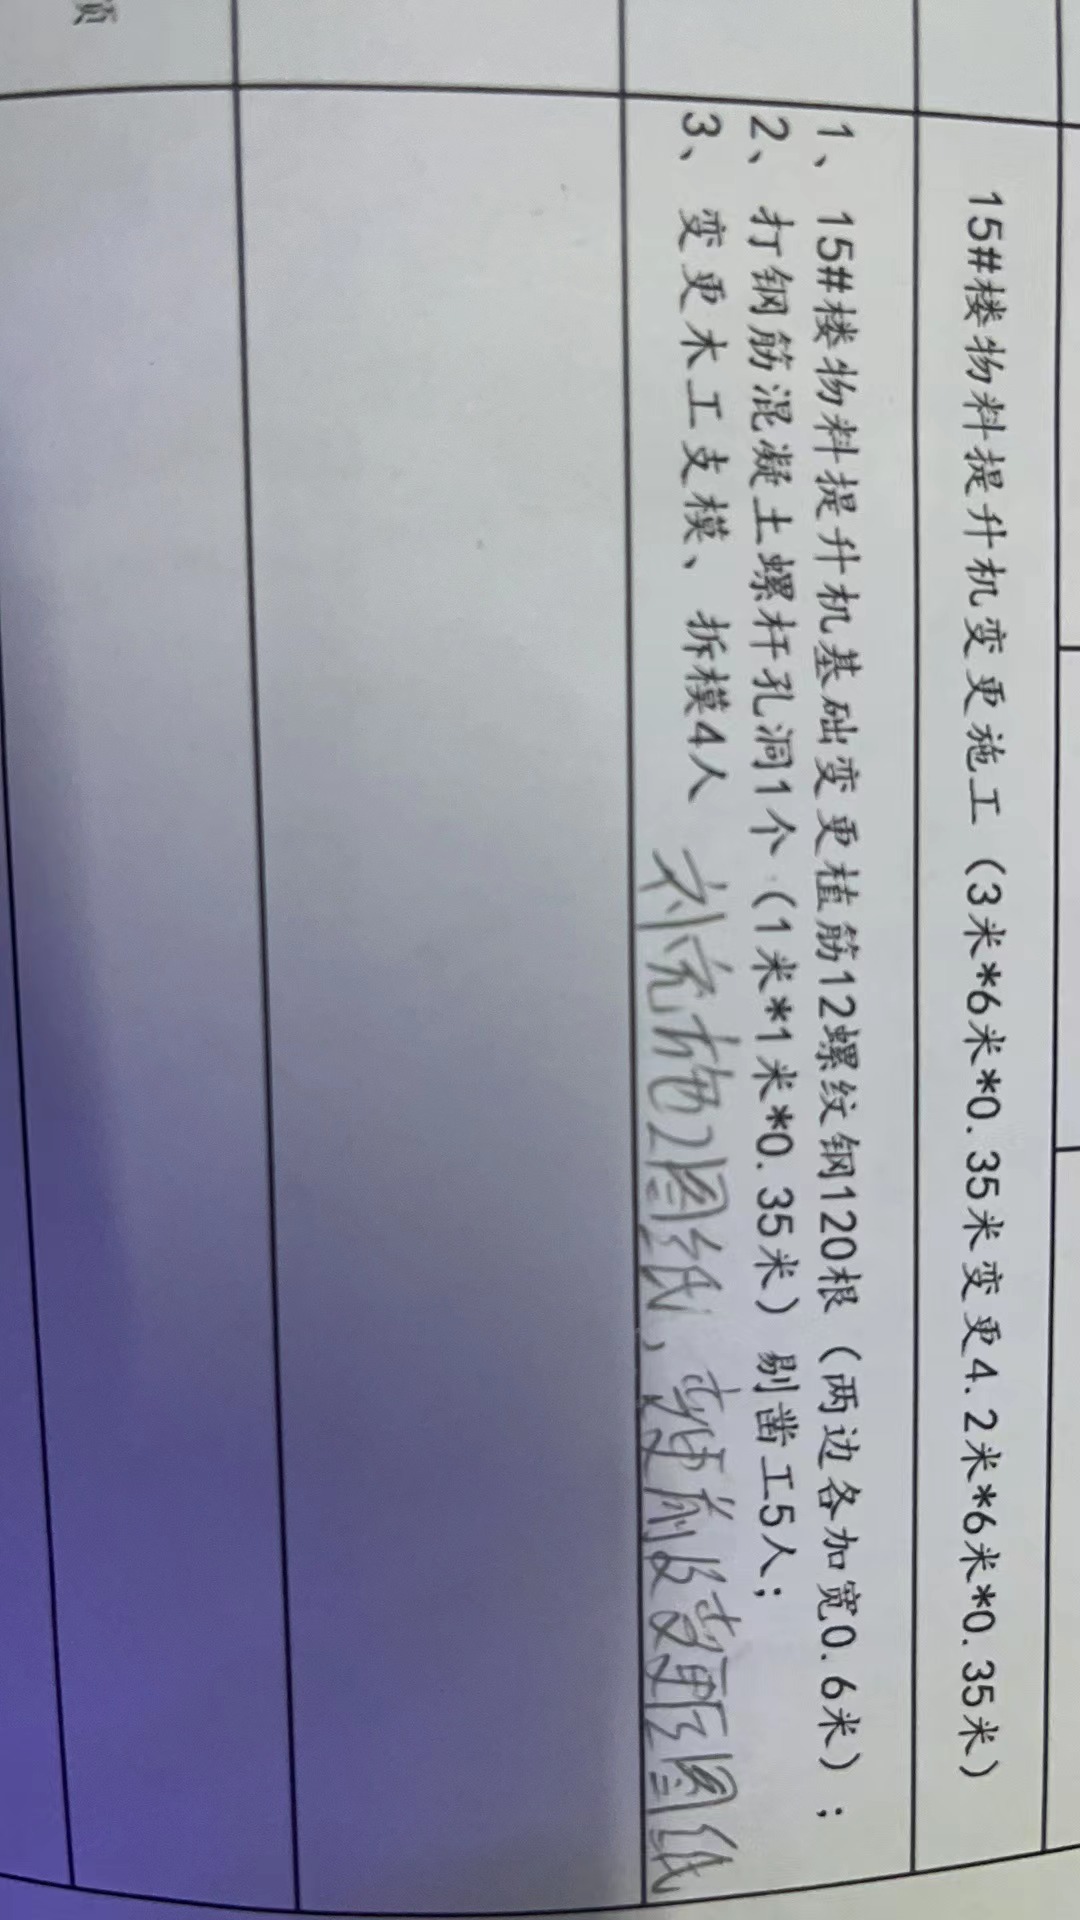 15#楼物料提升机变更施工（3米*6米*0.35米变更4.2米*6米*0.35米）
1、15#楼物料提升机基础变更植筋12螺纹钢120根（两边各加宽0.6米）；
2、打钢筋混凝土螺杆孔洞1个（1米*1米*0.35米）剔凿工5人；
3、变更木工支模、拆模4人 补充施工图纸，变更前及变更后图纸